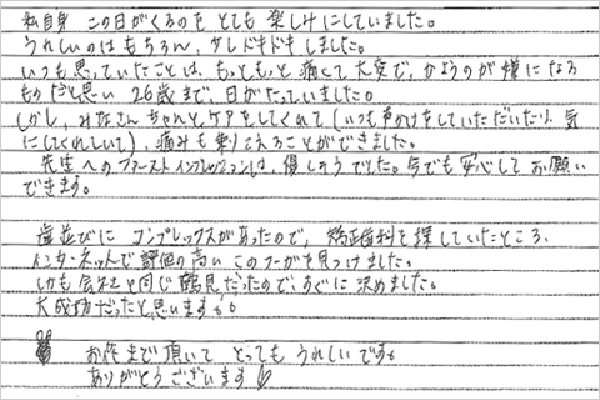 私自身 この日がくるのを とても 楽しみにしていました。
うれしいのはもちろん、少しドキドキしました。
いつも思っていたことは、もっともっと痛くて大変で、かようのが嫌になる
ものだと思い 26歳まで、日がたっていました。
しかし、みなさんちゃんとケアをしてくれて(いつも声かけをしていただいたり、気
にしてくれていて)、痛みも乗りこえることができました。
先生へのファーストインプレッションは、優しそうでした。今でも安心してお願い
できます。
歯並びに コンプレックスがあったので、矯正歯科を探していたところ、
インターネットで評価の高い このを見つけました。
しかも会社と同じ鶴見だったので、すぐに決めました。
大成功だったと思います。
お花まで頂いて とっても うれしいです。
ありがとうございます